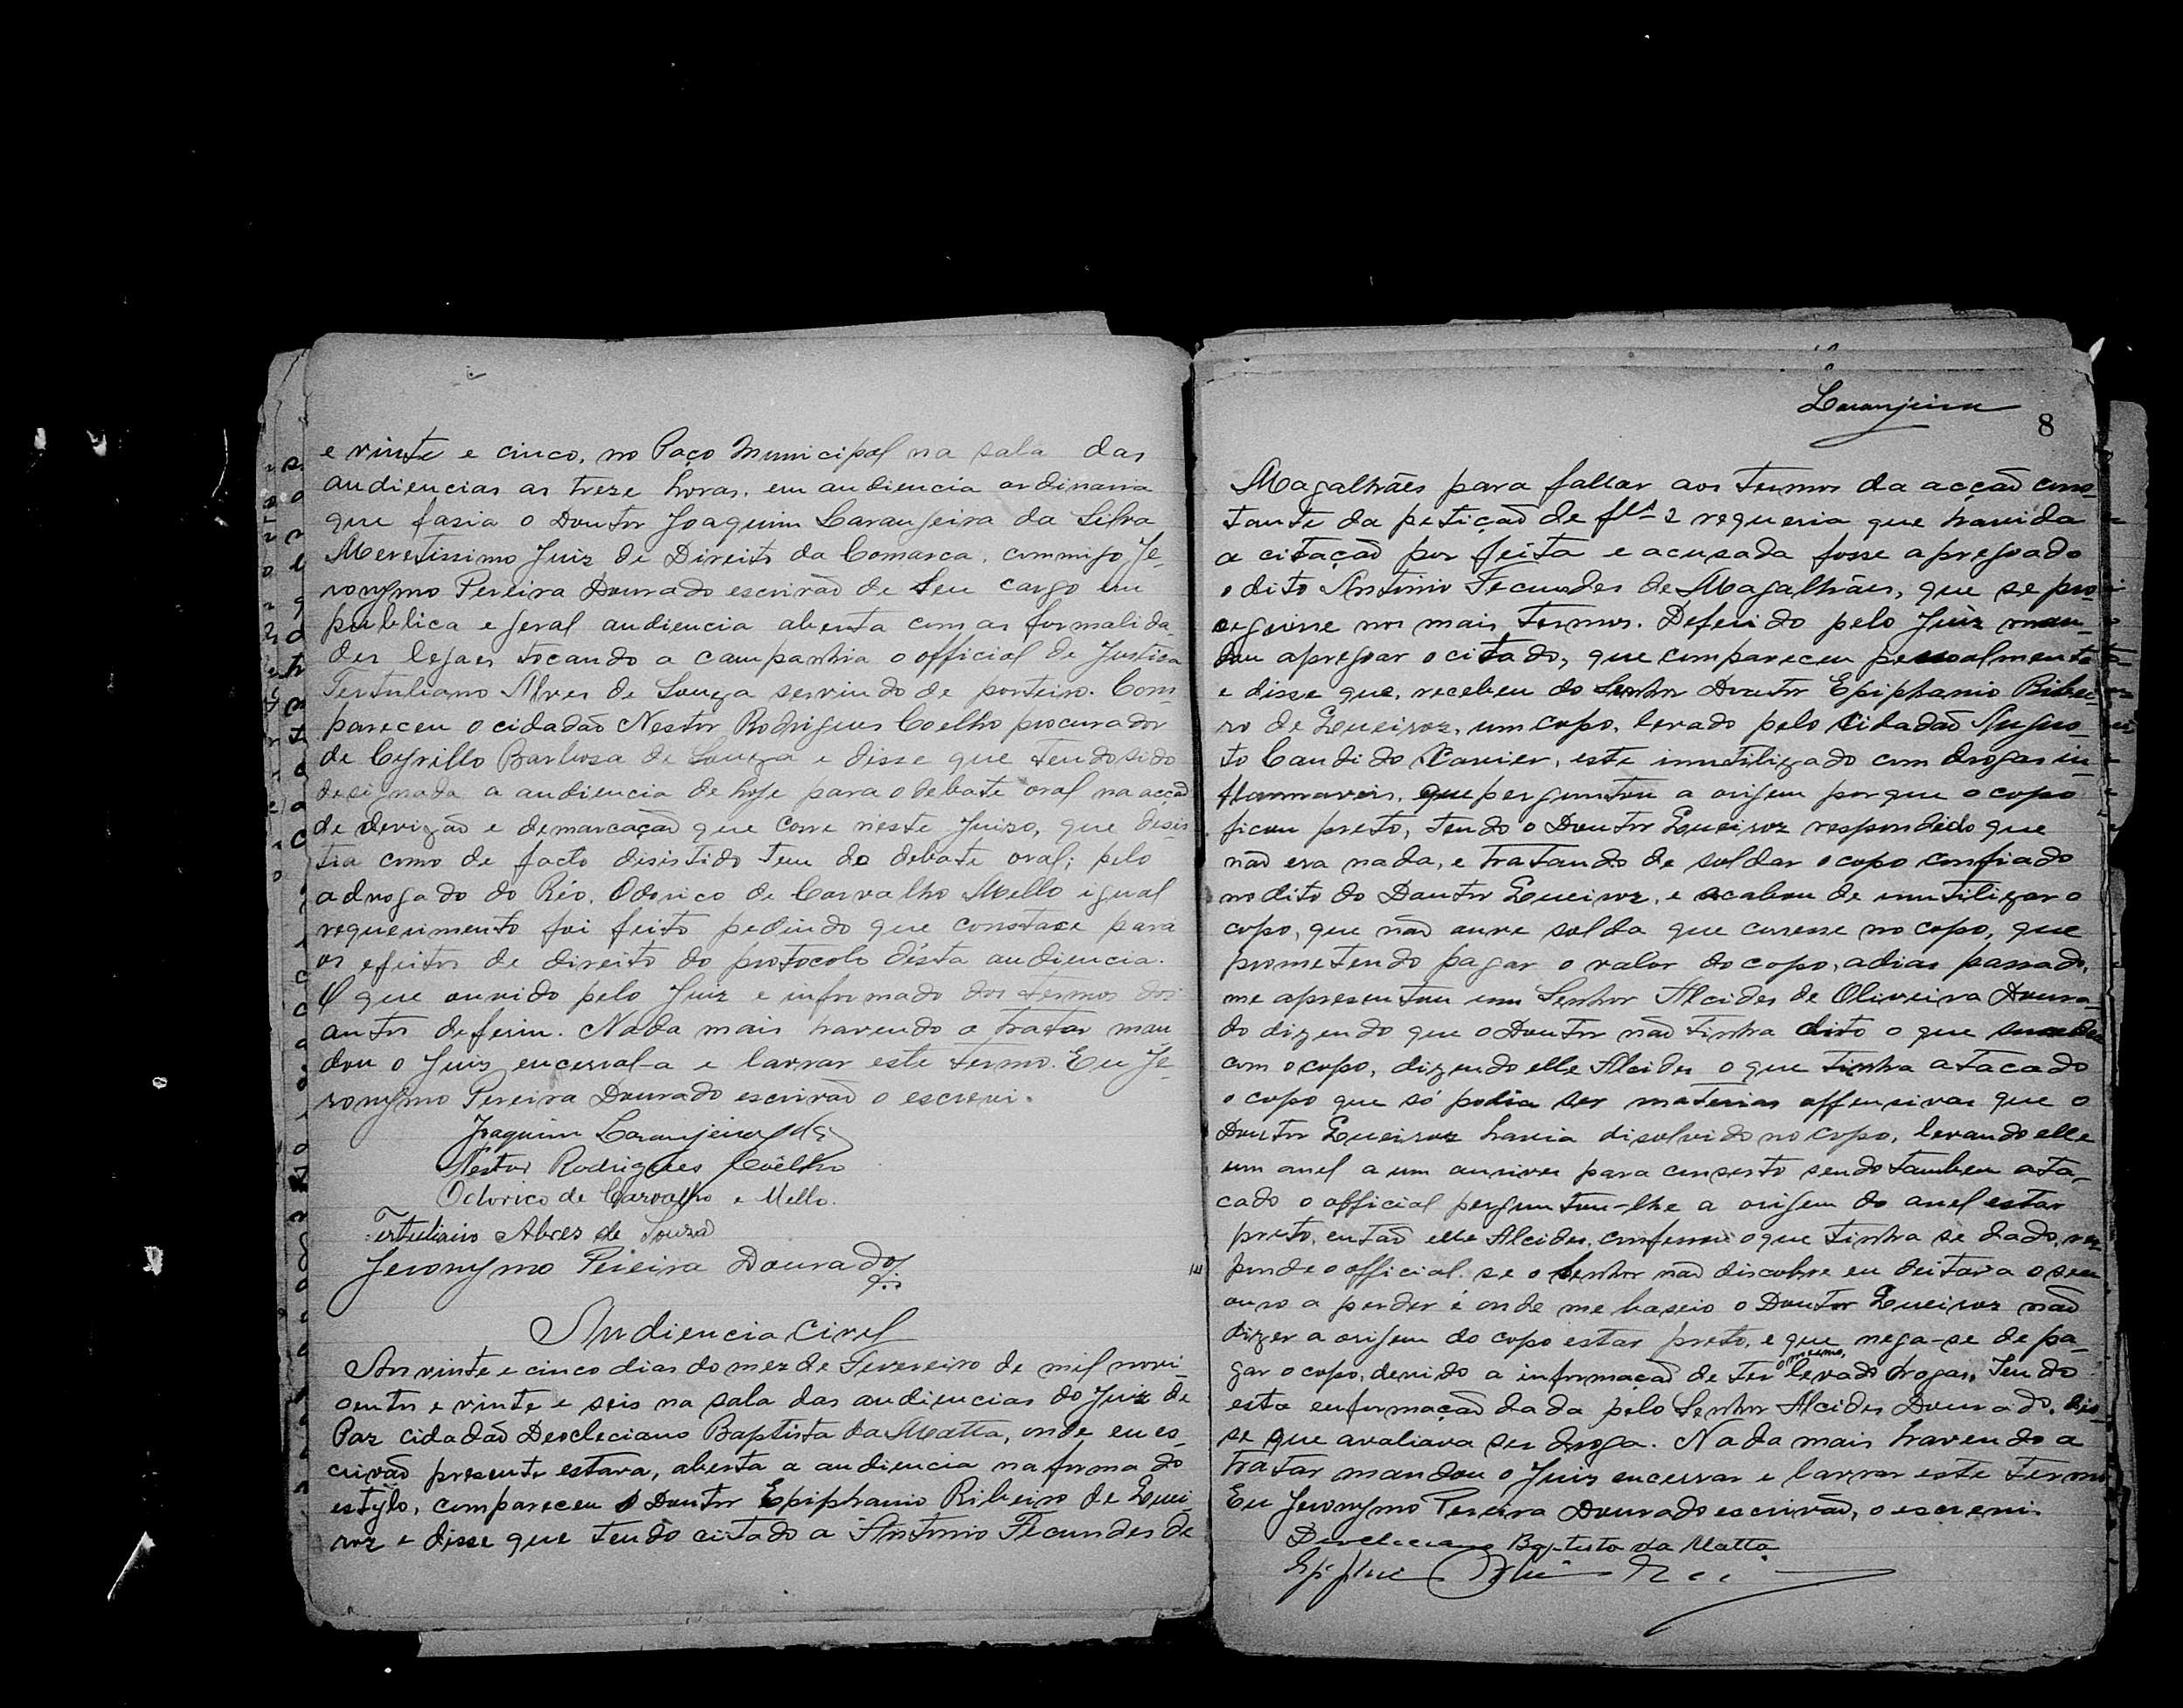 e vinte e cinco, no Paço Municipal na sala das
audiencias as treze horas, em audiencia ordinaria
que fasia o Doutor Joaquim Laranjeira da Silva
Meretissimo Juiz de Direito da Comarca, commigo Je-
ronymo Pereira Dourado escrivão de seu cargo em
publica e geral audiencia aberta com as formalida-
des legaes tocando a campanhia o official de Justiça
Tertuliano Alves de Souza servindo de porteiro. Com-
pareceu o cidadão Nestor Rodrigues Coelho procurador
de Cyrillo Barbosa de Souza e disse que tendo sido
designada a audiencia de hoje para o debate oral na acção
de devizão e demarcação que corre n'este Juizo, que desis-
tia como de facto disistido tem do debate oral; pelo
advogado do Réo, Odorico de Carvalho Mello igual
requerimento foi feito pedindo que constace para
os efeitos de direito do protocolo désta audiencia.
O que ouvido pelo Juiz e informado dos termos dos
autos deferiu. Nada mais havendo a tratar man-
dou o Juiz encerral-a e lavrar este termo. Eu Je-
ronymo Pereira Dourado escrivão o escrevi.
Joaquim Laranjeira da S
Nestor Rodrigues Coêlho
Odorico de Carvalho e Mello.
Tertuliano Alves de Souza
Jeronymo Pereira Dourado
Audiencia Civel
Aos vinte e cinco dias do mez de Fevereiro de mil novi-
centos e vinte e seis na sala das audiencias do Juiz de
Paz cidadão Deocleciano Baptista da Matta, onde eu es-
crivão presente estava, aberta a audiencia na forma do
estylo, compareceu o Doutor Epiphanio Ribeiro de Quei-
roz e disse que tendo citado a Antonio Fecundes de
Laranjeira
8
Magalhães para fallar aos termos da acção cons-
tante da petição de fls 2 requeria que havida
a citação por feita e acusada fosse apregoado
o dito Antonio Fecundes de Magalhães, que se pro-
seguisse nos mais termos. Deferido pelo Juiz man-
dou apregoar o citado, que compareceu pessoalmente
e disse que, recebeu do Senhor Doutor Epiphanio Ribei-
ro de Queiroz, um copo, levado pelo Cidadão Augus-
to Candido Xavier, este inutilizado com drogas in-
flammaveis, que perguntou a origem porque o copo
ficou preto, tendo o Doutor Queiroz respondido que
não era nada, e tratando de soldar o copo confiado
no dito do Doutor Queiroz, e acabou de inutilizar o
copo, que não ouve solda que cusesse no copo, que
prometendo pagar o valor do copo, a dias passado,
me apresentou um Senhor Alcides de Oliveira Doura-
do dizendo que o Doutor não tinha dito o que sucedeu
com o copo, dizendo elle Alcides o que tinha atacado
o copo que só podia ser materias offensivas que o
Doutor Queiroz havia disolvido no copo, levando elle
um anel a um ourives para conserto sendo tambem ata-
cado o official perguntou-lhe a origem do anel estar
preto, então elle Alcides, confessou o que tinha se dado, res-
ponde o official. se o Senhor não discobre eu deitava o seu
ouro a perder é onde me baseio o Doutor Queiroz não
dizer a origem do copo estar preto, e que nega-se de pa-
gar o copo, devido a informação de ter o mesmo, levado drogas. Tendo
esta enformação dada pelo Senhor Alcides Dourado. dis-
se que avaliava ser droga. Nada mais havendo a
tratar mandou o Juiz encerrar e lavrar este termo
Eu Jeronymo Pereira Dourado escrivão, o escrevi.
Deocleciano Baptista da Matta